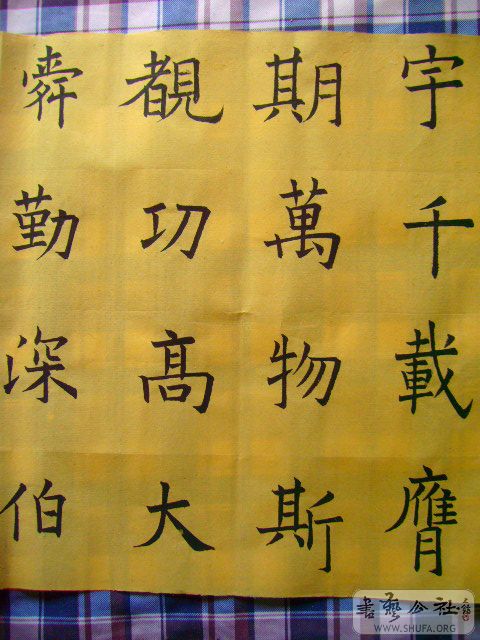 宇千載膺
期萬物斯
覩功髙大
舜勤深伯
書藝公社
WWW.SHUFA.ORG